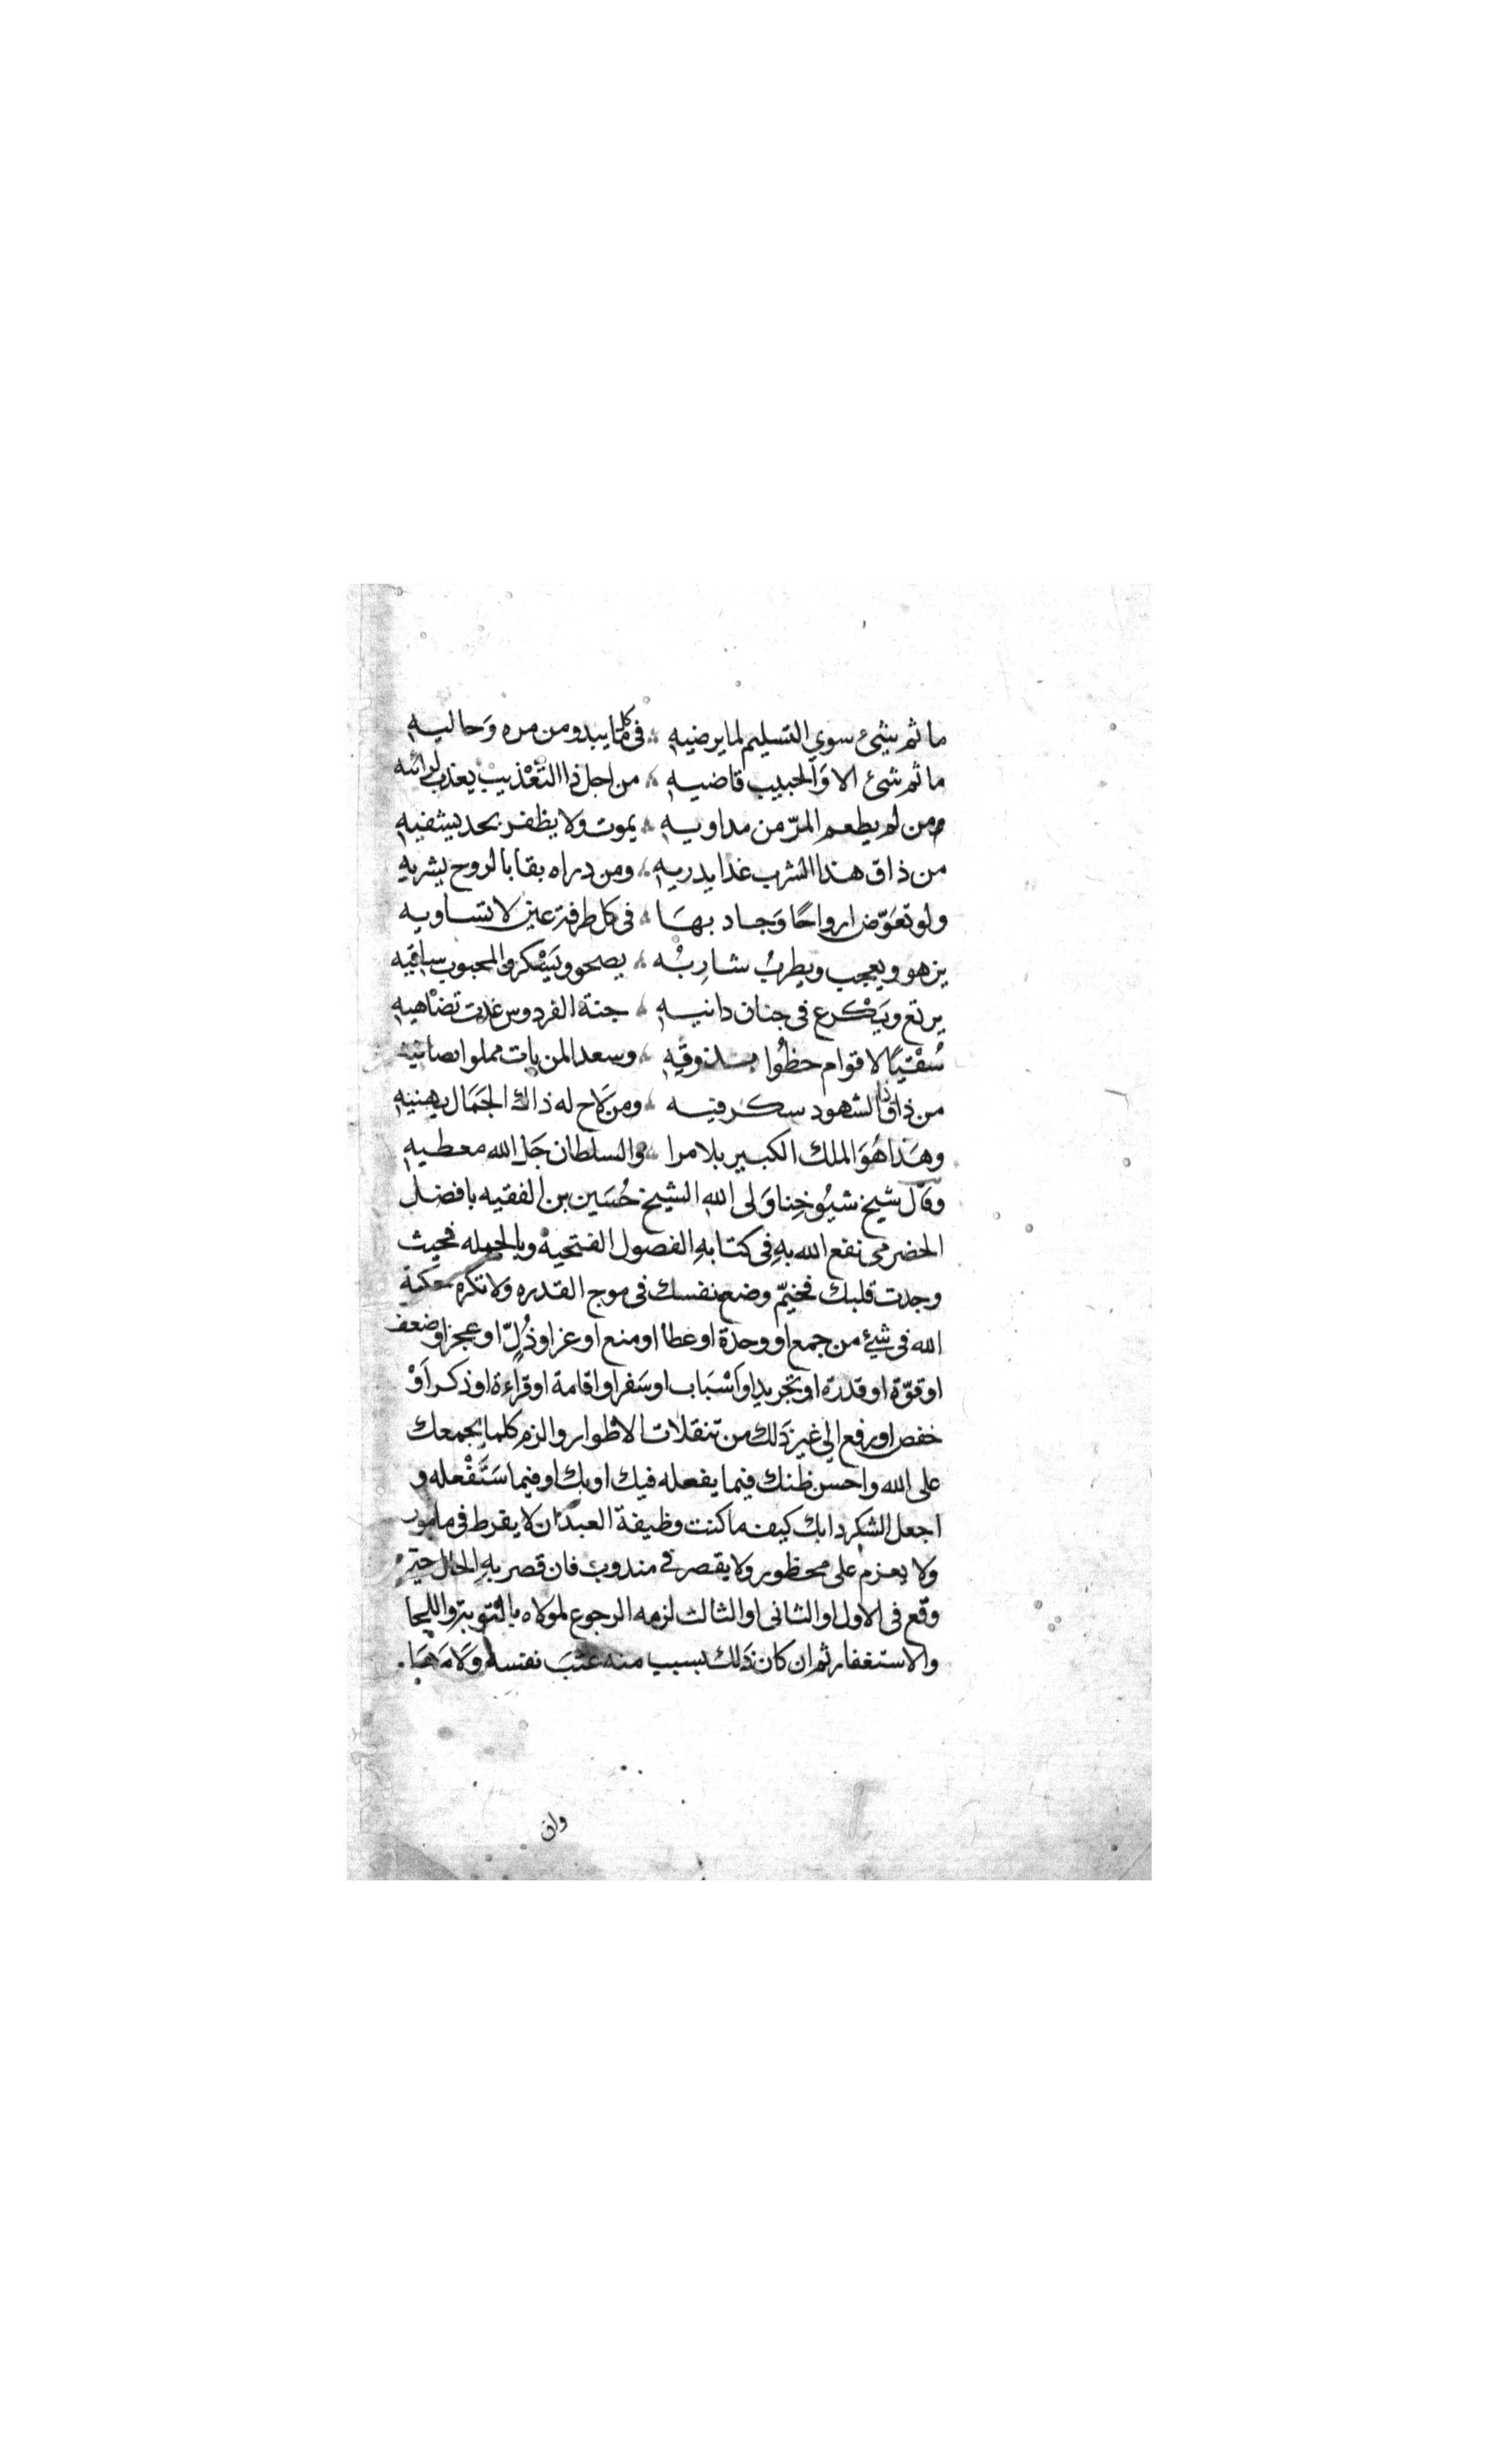 ما ثم شيئ سوي التسليم لما يرضيه ؞ في كلما يبدو من مره وَحاليه
ما ثم شئ الا وَالحبيب قاضيه ؞ من اجل ذا التعْذيب يعذب لرائه
ومن لم يطعم المرّ من مداويه ؞ يموت ولا يظفر بحد يشفيه
من ذاق هذا الشرب غدا يدريه ؞ ومن دراه بقا بالروح يشريه
ولو تعَوّض ارواحًا وَجاد بهَا ؞ في كل طرفة عين لا تساويه
يزهو ويعجب ويطربُ شارِبُه ؞ يصحو ويَسْكر والمحبوب ساقيه
يرتع ويَكْرع في جنان دانيه ؞ جنة الفردوس غدت تضاهيه
سُقْيًا لاقوام حظُوا بذوقه ؞ وسعدا لمن بات مملوا بصافيه
من ذاق ذا الشهود سكر فيه ؞ ومن لَاح له ذاك الجَمَال يهنيه
وهَذا هُوَ الملك الكبير بلا مرا ؞ والسلطان جَل الله معطيه
وقال شيخ شيُوخِنا وَلى الله الشيخ حُسَين بن الفقيه بافضل
الحضرمي نفع الله بهِ في كتابهِ الفصول الفتحيه وبالجمله فحيث
وجدت قلبك فخيّم وضع نفسك في موج القدره ولا تكره حكمة
الله في شيئ من جمع او وحدة او عطا او منع او عز او ذُلّ او عجز او ضعف
او قوّة او قدرة او تجريد او اَسْبَاب او سَفر او اقامة او قراءة او ذكر اَوْ
خفض او رفع الي غير ذَلك من تنقلات الاطوار والزم كلما يجمعك
على الله واحسن ظنك فيما يفعله فيك او بك او فيما سَتَفْعله و
اجعل الشكر دابك كيف ما كنت وظيفة العبد ان لا يفرط في مامور
ولا يعزم على محظور ولا يقصر في مندوب فان قصر بهِ الحال حتى
وقع في الاول او الثاني او الثالث لزمه الرجوع لمولاه بالتوبة واللجا
والاستغفار ثم ان كان ذَلك بسبب منه عتبَ نفسه وَلَامَهَا.
وان